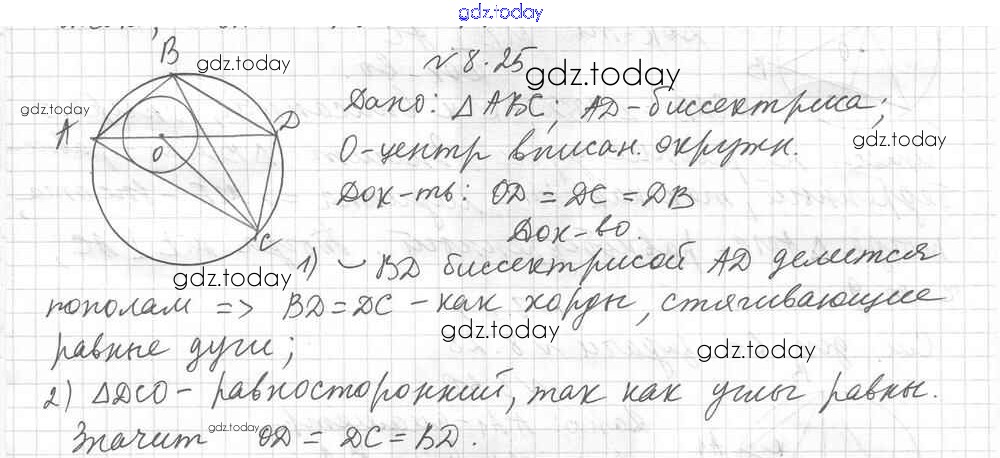 gdz.today
B
gdz.today
gdz.today
A
D
O
C
gdz.today
№ 8.25
gdz.today
Дано: △ABC; AD-биссектриса;
O-центр вписан. окружн.
gdz.today
Док-ть: OD = DC = DB
Док-во.
1) ◡ BD биссектрисой AD делится
пополам => BD = DC - как хорды, стягивающие
gdz.today
равные дуги;
gdz.today
2) △DCO - равносторонний, так как углы равны.
Значит gdz.today OD = DC = BD.